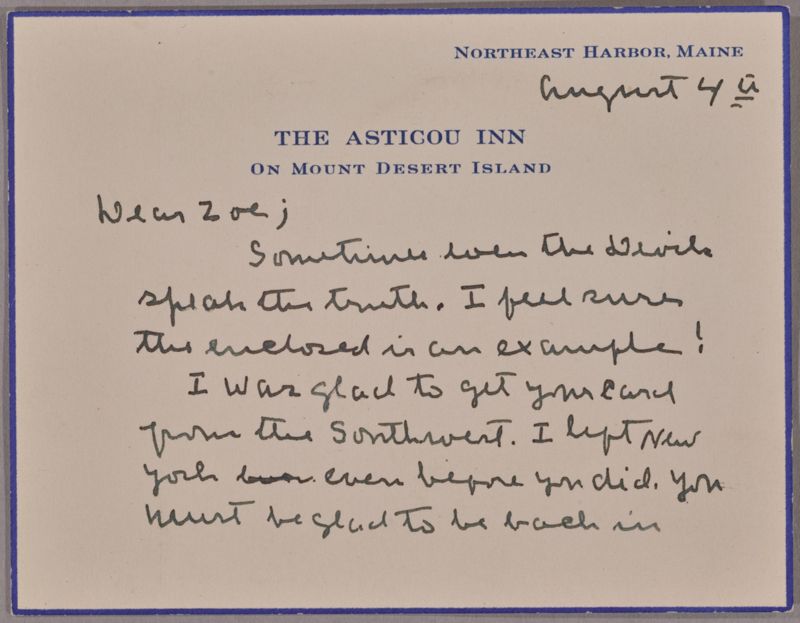 NORTHEAST HARBOR, MAINE
August 4th
THE ASTICOU INN
ON MOUNT DESERT ISLAND
Dear Zoe;
Sometimes even the Devils
speak the truth. I feel sure
the enclosed is an example!
I was glad to get your card
from the Southwest. I left New
York even before you did. You
must be glad to be back in